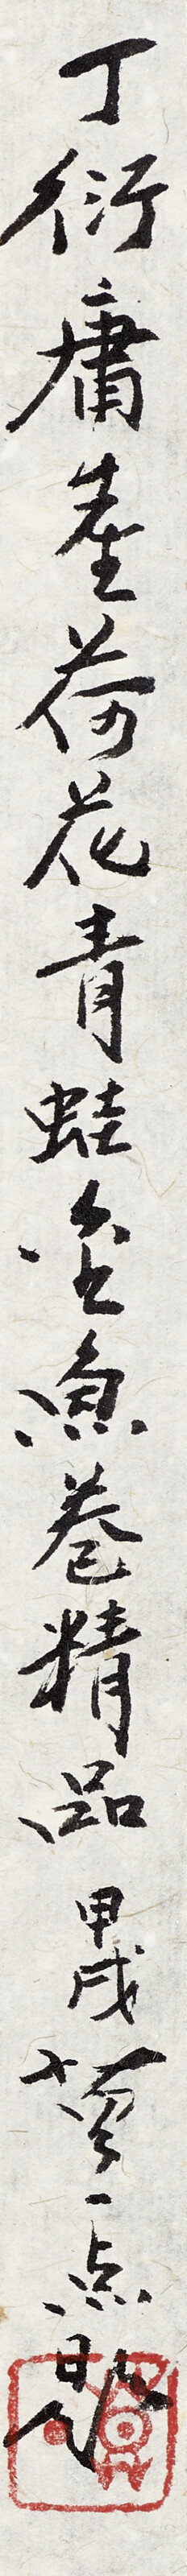 丁衍庸畫荷花青蛙金魚卷精品 甲戌 莫一点題